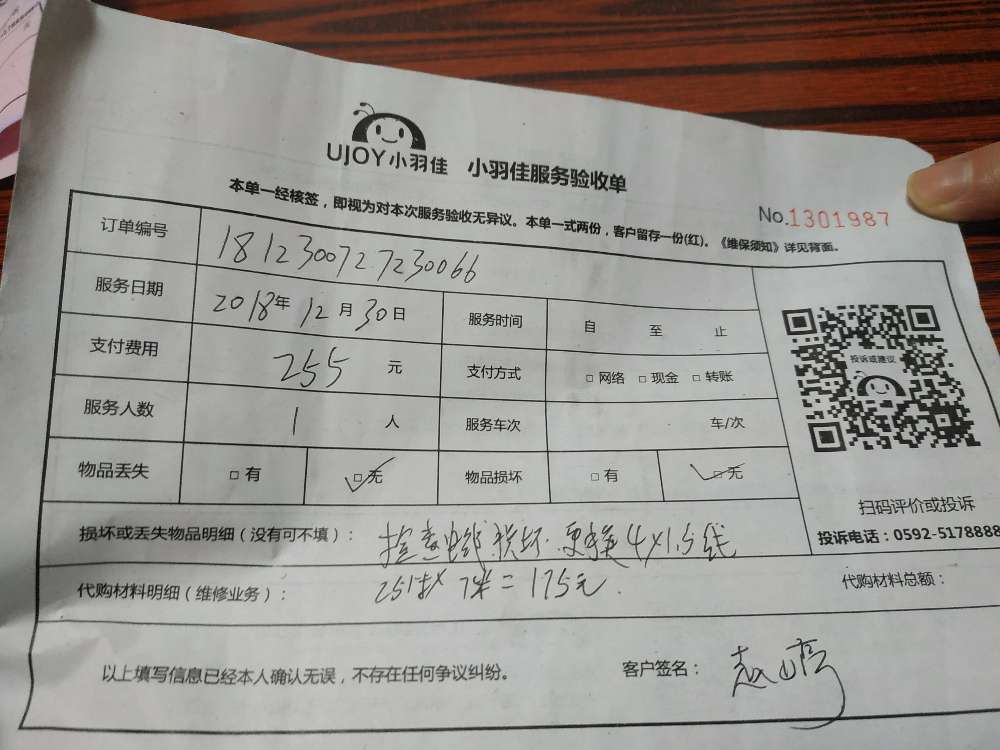 UJOY小羽佳 小羽佳服务验收单
No.1301987
本单一经核签，即视为对本次服务验收无异议。本单一式两份，客户留存一份(红)。《维保须知》详见背面。
订单编号 181230072 7230066
服务日期 2018年 12月 30日 服务时间 自 至 止
支付费用 255 元 支付方式 □ 网络 □ 现金 □ 转账
投诉或建议
服务人数 1 人 服务车次 车/次
物品丢失 □ 有 □ 无 物品损坏 □ 有 □ 无
扫码评价或投诉
投诉电话：0592-5178888
损坏或丢失物品明细（没有可不填）： 检查电线 损坏 更换 4×1.5 线
代购材料明细（维修业务）： 7米 = 175元. 代购材料总额：
以上填写信息已经本人确认无误，不存在任何争议纠纷。 客户签名：